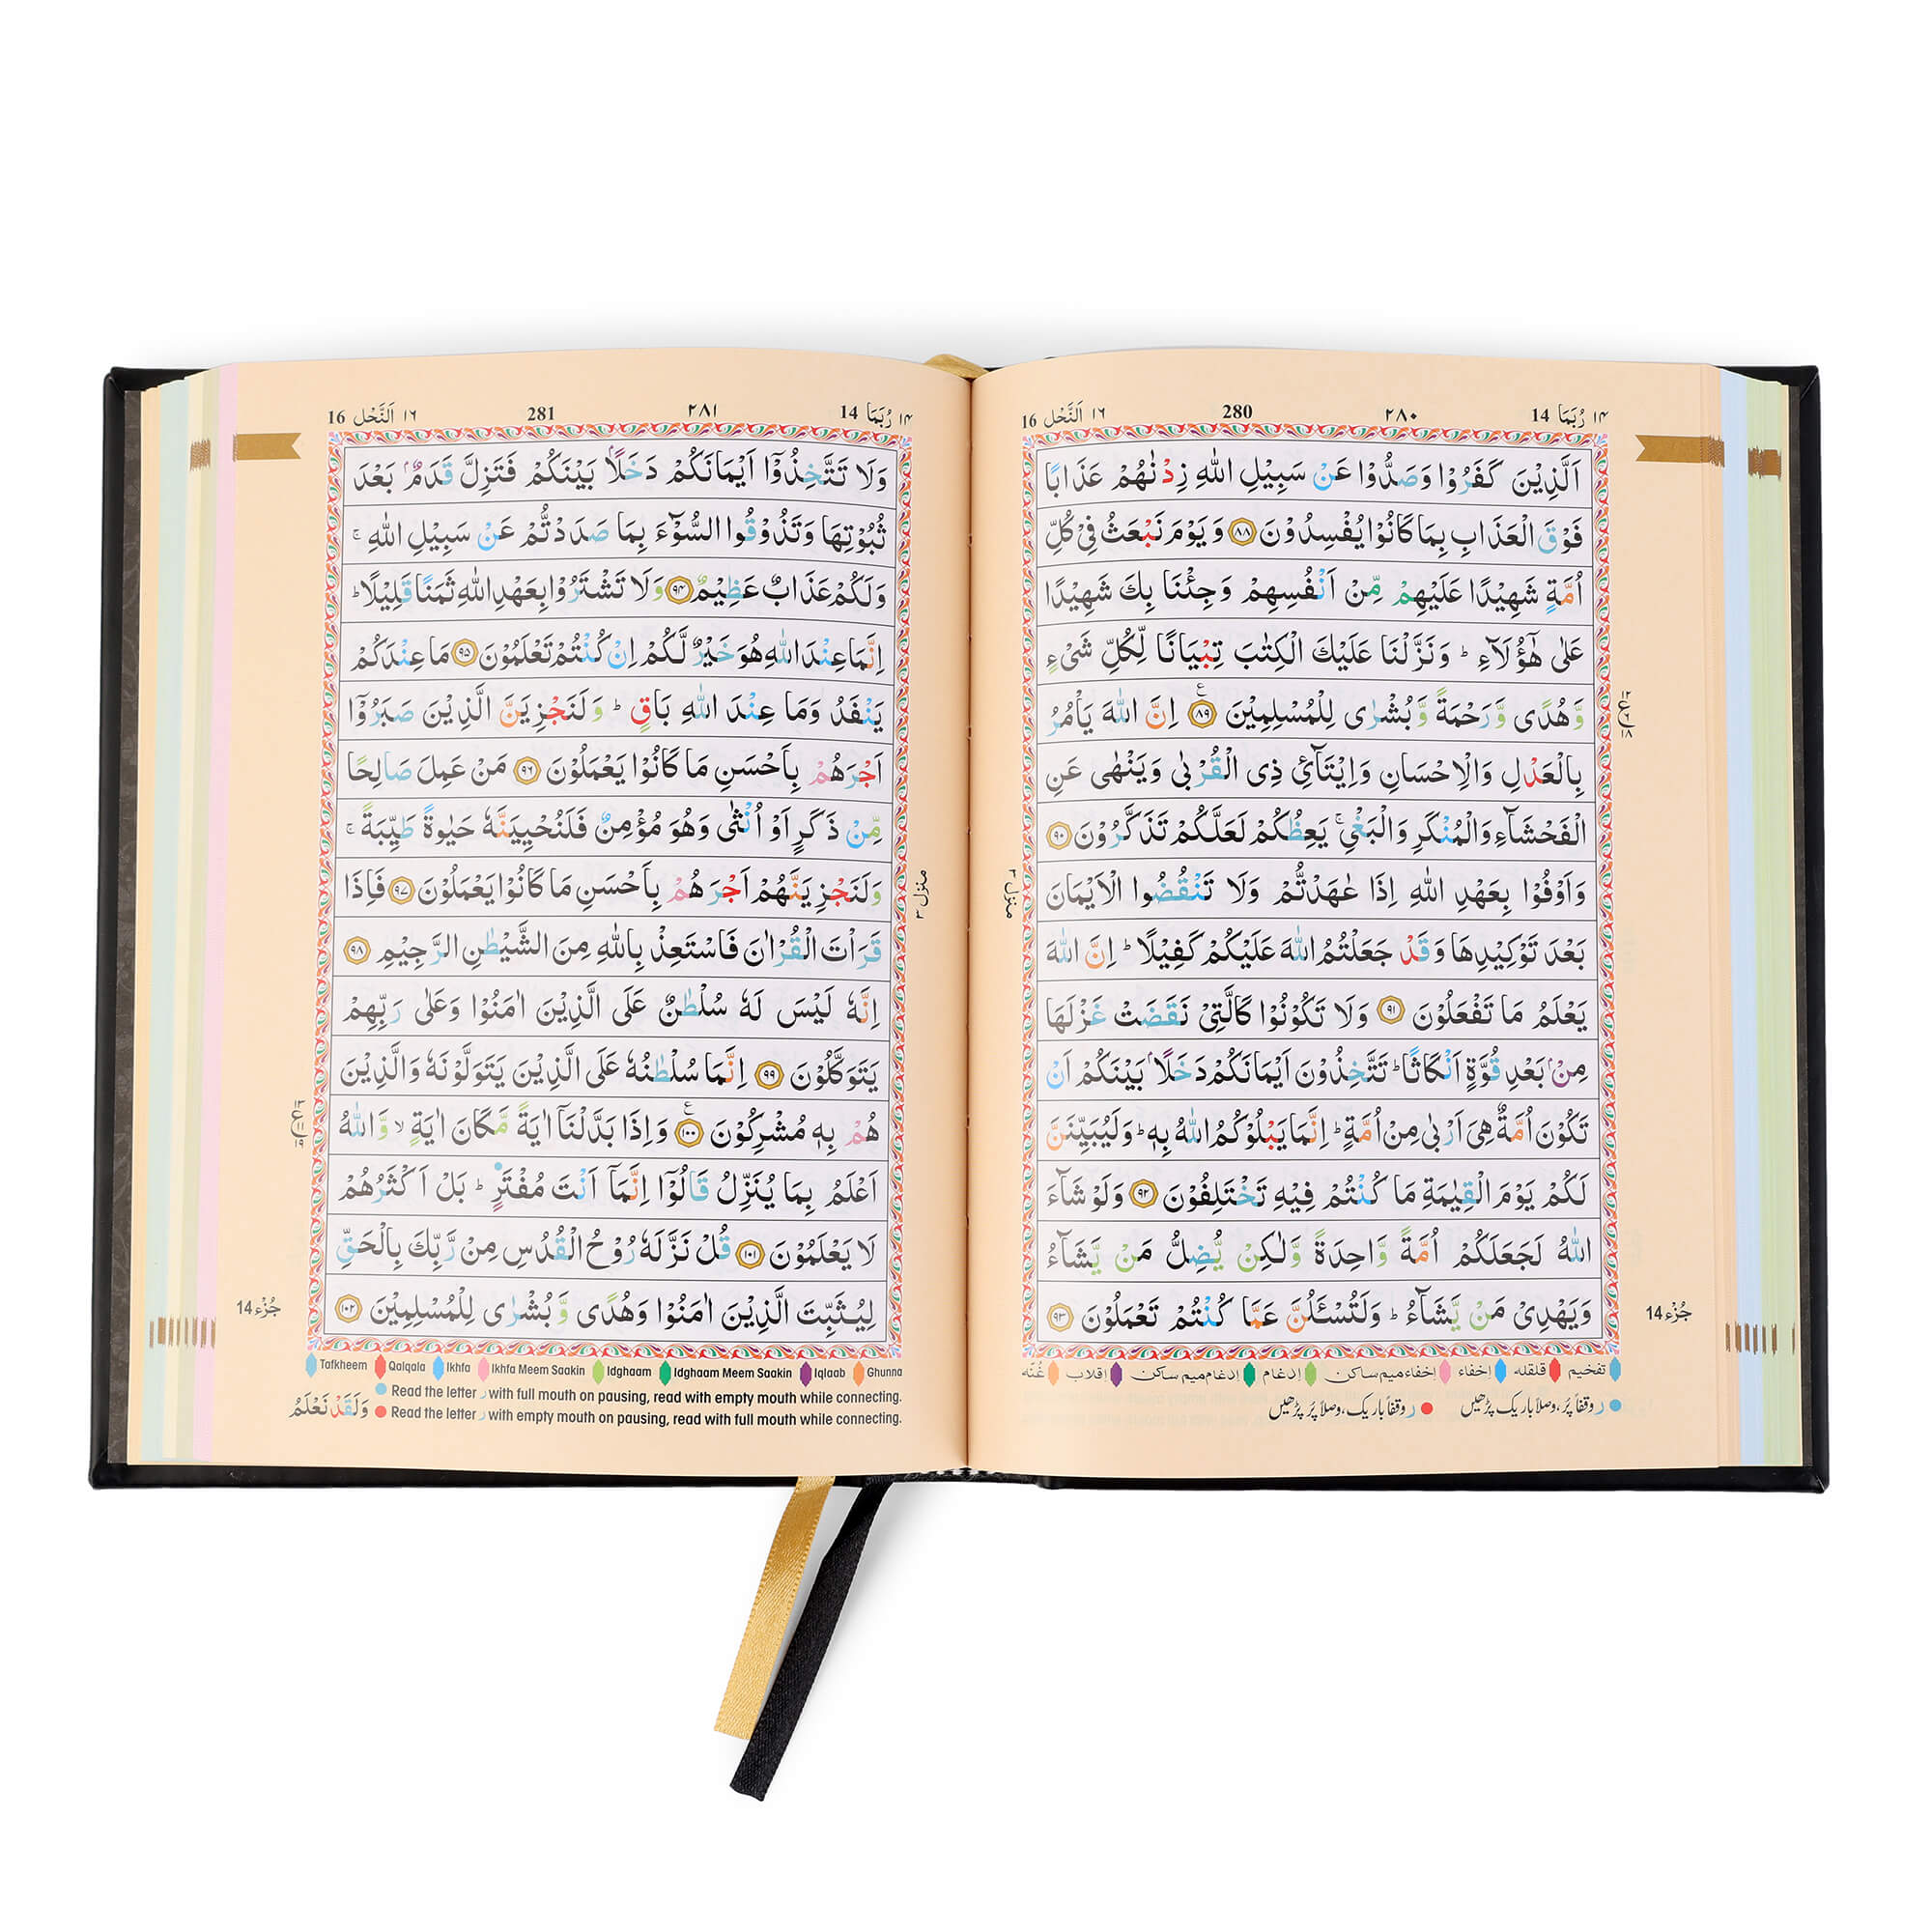 ١٤ رُبَمَا 14 ٢٨٠ 280 ١٦ اَلنَّحْل 16
اَلَّذِيْنَ كَفَرُوْا وَصَدُّوْا عَنْ سَبِيْلِ اللّٰهِ زِدْنٰهُمْ عَذَابًا
فَوْقَ الْعَذَابِ بِمَا كَانُوْا يُفْسِدُوْنَ ۝٨٨ وَيَوْمَ نَبْعَثُ فِيْ كُلِّ
اُمَّةٍ شَهِيْدًا عَلَيْهِمْ مِّنْ اَنْفُسِهِمْ وَجِئْنَا بِكَ شَهِيْدًا
عَلٰى هٰٓؤُلَآءِ ؕ وَنَزَّلْنَا عَلَيْكَ الْكِتٰبَ تِبْيَانًا لِّكُلِّ شَيْءٍ
وَّهُدًى وَّرَحْمَةً وَّبُشْرٰى لِلْمُسْلِمِيْنَ ۝٨٩ اِنَّ اللّٰهَ يَاْمُرُ
بِالْعَدْلِ وَالْاِحْسَانِ وَاِيْتَآئِ ذِى الْقُرْبٰى وَيَنْهٰى عَنِ
الْفَحْشَآءِ وَالْمُنْكَرِ وَالْبَغْيِ ۚ يَعِظُكُمْ لَعَلَّكُمْ تَذَكَّرُوْنَ ۝٩٠
وَاَوْفُوْا بِعَهْدِ اللّٰهِ اِذَا عٰهَدْتُّمْ وَلَا تَنْقُضُوا الْاَيْمَانَ
بَعْدَ تَوْكِيْدِهَا وَقَدْ جَعَلْتُمُ اللّٰهَ عَلَيْكُمْ كَفِيْلًا ؕ اِنَّ اللّٰهَ
يَعْلَمُ مَا تَفْعَلُوْنَ ۝٩١ وَلَا تَكُوْنُوْا كَالَّتِيْ نَقَضَتْ غَزْلَهَا
مِنْۢ بَعْدِ قُوَّةٍ اَنْكَاثًا ؕ تَتَّخِذُوْنَ اَيْمَانَكُمْ دَخَلًاۢ بَيْنَكُمْ اَنْ
تَكُوْنَ اُمَّةٌ هِيَ اَرْبٰى مِنْ اُمَّةٍ ؕ اِنَّمَا يَبْلُوْكُمُ اللّٰهُ بِهٖ ؕ وَلَيُبَيِّنَنَّ
لَكُمْ يَوْمَ الْقِيٰمَةِ مَا كُنْتُمْ فِيْهِ تَخْتَلِفُوْنَ ۝٩٢ وَلَوْ شَآءَ
اللّٰهُ لَجَعَلَكُمْ اُمَّةً وَّاحِدَةً وَّلٰكِنْ يُّضِلُّ مَنْ يَّشَآءُ
وَيَهْدِيْ مَنْ يَّشَآءُ ؕ وَلَتُسْـَٔلُنَّ عَمَّا كُنْتُمْ تَعْمَلُوْنَ ۝٩٣
جُزْء 14
منزل ٣
تفخیم قلقله اخفاء اخفاء میم ساكن ادغام ادغام میم ساكن اقلاب غُنّه
ر وقفاً پُر، وصلاً باریک پڑھیں ر وقفاً باریک، وصلاً پُر پڑھیں
١٤ رُبَمَا 14 ٢٨١ 281 ١٦ اَلنَّحْل 16
وَلَا تَتَّخِذُوْٓا اَيْمَانَكُمْ دَخَلًاۢ بَيْنَكُمْ فَتَزِلَّ قَدَمٌۢ بَعْدَ
ثُبُوْتِهَا وَتَذُوْقُوا السُّوْٓءَ بِمَا صَدَدْتُّمْ عَنْ سَبِيْلِ اللّٰهِ ۚ
وَلَكُمْ عَذَابٌ عَظِيْمٌ ۝٩٤ وَلَا تَشْتَرُوْا بِعَهْدِ اللّٰهِ ثَمَنًا قَلِيْلًا ؕ
اِنَّمَا عِنْدَ اللّٰهِ هُوَ خَيْرٌ لَّكُمْ اِنْ كُنْتُمْ تَعْلَمُوْنَ ۝٩٥ مَا عِنْدَكُمْ
يَنْفَدُ وَمَا عِنْدَ اللّٰهِ بَاقٍ ؕ وَلَنَجْزِيَنَّ الَّذِيْنَ صَبَرُوْٓا
اَجْرَهُمْ بِاَحْسَنِ مَا كَانُوْا يَعْمَلُوْنَ ۝٩٦ مَنْ عَمِلَ صَالِحًا
مِّنْ ذَكَرٍ اَوْ اُنْثٰى وَهُوَ مُؤْمِنٌ فَلَنُحْيِيَنَّهٗ حَيٰوةً طَيِّبَةً ۚ
وَلَنَجْزِيَنَّهُمْ اَجْرَهُمْ بِاَحْسَنِ مَا كَانُوْا يَعْمَلُوْنَ ۝٩٧ فَاِذَا
قَرَاْتَ الْقُرْاٰنَ فَاسْتَعِذْ بِاللّٰهِ مِنَ الشَّيْطٰنِ الرَّجِيْمِ ۝٩٨
اِنَّهٗ لَيْسَ لَهٗ سُلْطٰنٌ عَلَى الَّذِيْنَ اٰمَنُوْا وَعَلٰى رَبِّهِمْ
يَتَوَكَّلُوْنَ ۝٩٩ اِنَّمَا سُلْطٰنُهٗ عَلَى الَّذِيْنَ يَتَوَلَّوْنَهٗ وَالَّذِيْنَ
هُمْ بِهٖ مُشْرِكُوْنَ ۝١٠٠ وَاِذَا بَدَّلْنَآ اٰيَةً مَّكَانَ اٰيَةٍ ۙ وَّاللّٰهُ
اَعْلَمُ بِمَا يُنَزِّلُ قَالُوْٓا اِنَّمَآ اَنْتَ مُفْتَرٍ ؕ بَلْ اَكْثَرُهُمْ
لَا يَعْلَمُوْنَ ۝١٠١ قُلْ نَزَّلَهٗ رُوْحُ الْقُدُسِ مِنْ رَّبِّكَ بِالْحَقِّ
لِيُثَبِّتَ الَّذِيْنَ اٰمَنُوْا وَهُدًى وَّبُشْرٰى لِلْمُسْلِمِيْنَ ۝١٠٢
جُزْء 14
منزل ٣
Tafkheem Qalqala Ikhfa Ikhfa Meem Saakin Idghaam Idghaam Meem Saakin Iqlaab Ghunna
Read the letter ر with full mouth on pausing, read with empty mouth while connecting.
Read the letter ر with empty mouth on pausing, read with full mouth while connecting.
وَلَقَدْ نَعْلَمُ